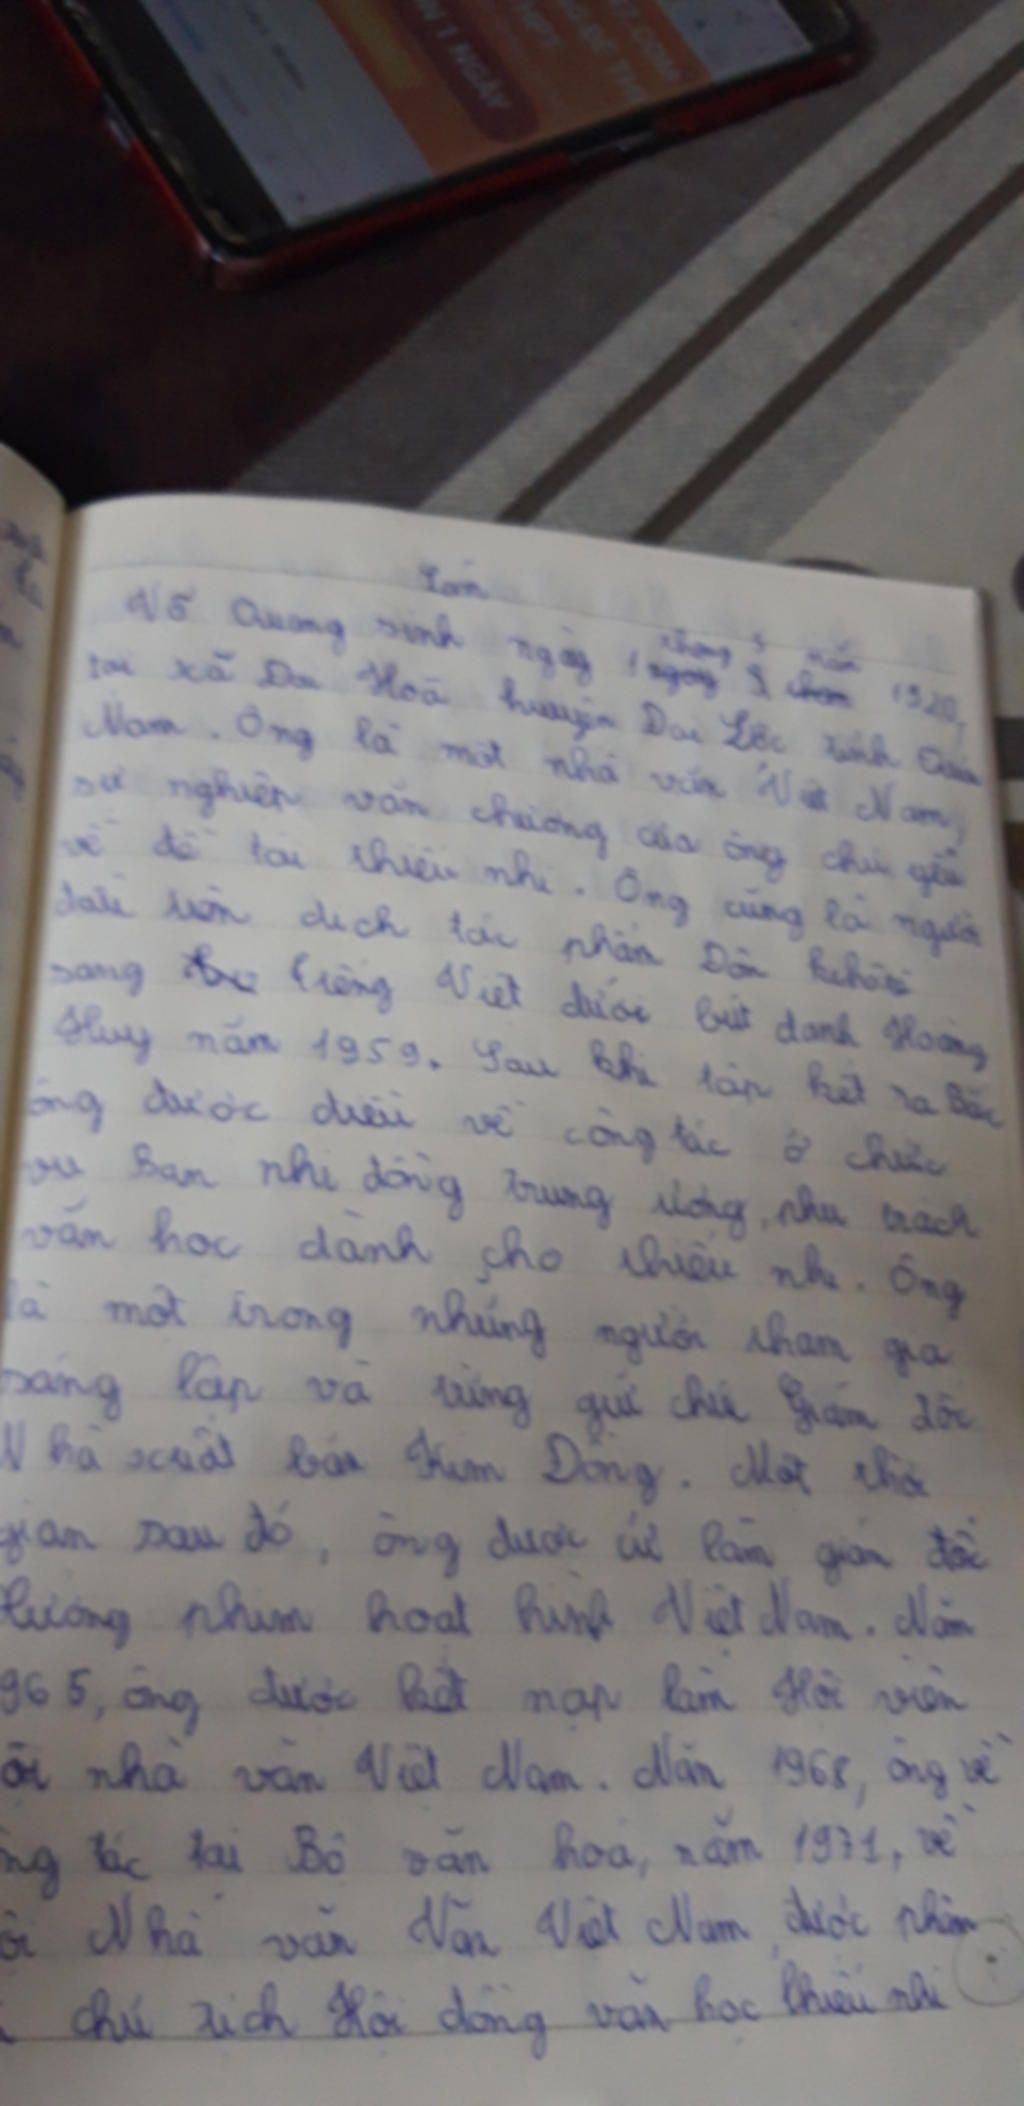 1 NGÀY
THPT
Võ Quang sinh ngày 1 tháng 3 năm 1920,
tại xã Đại Hoà huyện Đại Lộc tỉnh Quản
Nam. Ông là một nhà văn Việt Nam,
sự nghiệp văn chương của ông chủ yếu
về đề tài thiếu nhi. Ông cũng là người
đầu tiên dịch tác phẩm Đôn kihôtê
sang tiếng Việt dưới bút danh Hoàng
Huy năm 1959. Sau khi tập kết ra Bắc
ông được điều về công tác ở chức
vụ Ban nhi đồng trung ương, phụ trách
văn học dành cho thiếu nhi. Ông
là một trong những người tham gia
sáng lập và từng giữ chức Giám đốc
Nhà xuất bản Kim Đồng. Một thời
gian sau đó, ông được cử làm giám đốc
xưởng phim hoạt hình Việt Nam. Năm
965, ông được kết nạp làm Hội viên
ội nhà văn Việt Nam. Năm 1968, ông về
ng tác tại Bộ văn hoá, năm 1971, về
ội Nhà văn Văn Việt Nam, được phân
chủ tịch Hội đồng văn học thiếu nhi